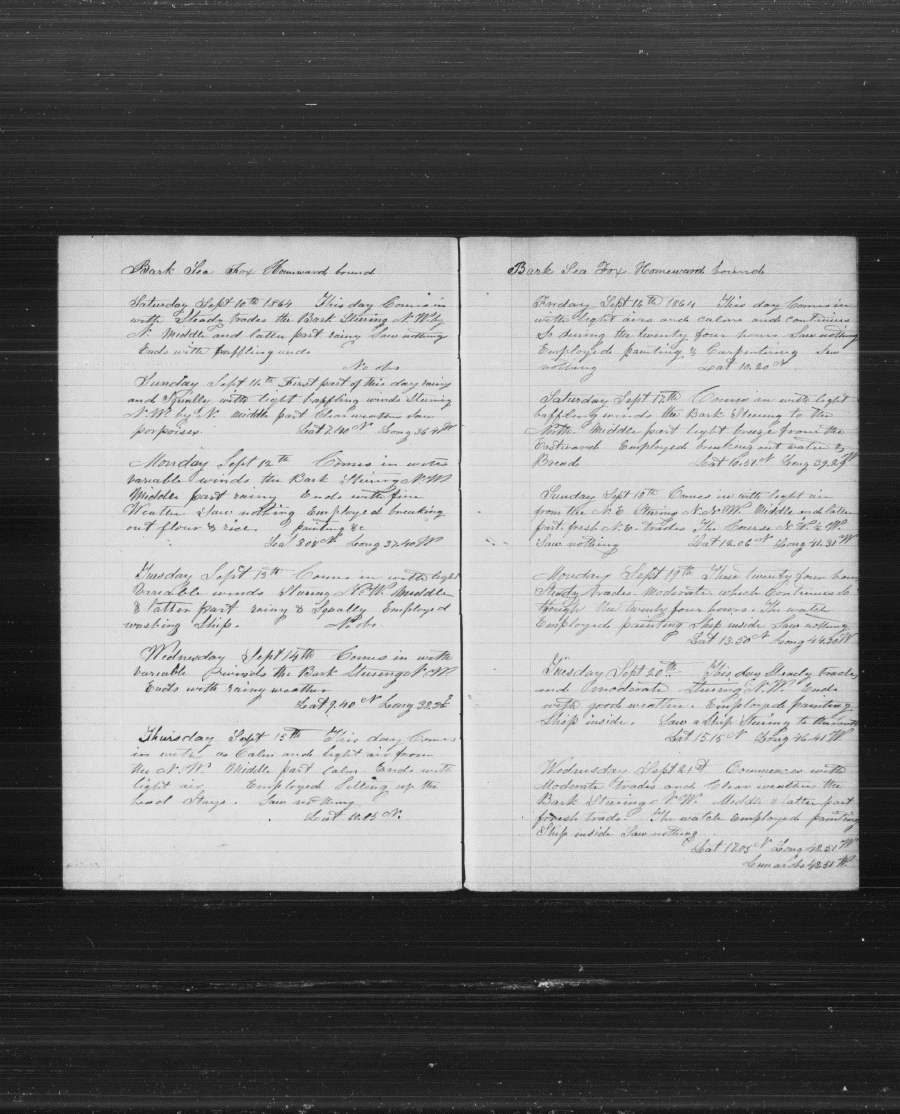 Bark Sea Fox Homeward bound
Saturday Sept 10th 1864 This day Comes in
with Steady trades the Bark Stering N.W. by
N. Middle and latter part rainy Saw nothing
Ends with baffling winds
No obs
Sunday Sept 11th First part of this day rainy
and Squally with light baffling winds Stering
N.W. by N. middle part Clear weather Saw
porpoises. Lat 7.40 N Long 36.41 W
Monday Sept 12th Comes in with
variable winds the Bark Stering N.W
Middle part rainy Ends with fine
Weater Saw nothing Employed breaking
out flour & rice painting &c
Lat 8.08 N Long 37.40 W
Tuesday Sept 13th Comes in with light
Variable winds Stering N.W. Middle
& latter part rainy & Squally Employed
washing Ship. No obs.
Wednesday Sept 14th Comes in with
variable winds the Bark Stering N.W
Ends with rainy weather
Lat 9.40 N Long 38.32
Thursday Sept 15th This day Comes
in with a Calm and light air from
the N.W. Middle part Calm Ends with
light air Employed Setting up the
head Stays. Saw nothing
Lat 10.15 N.
Bark Sea Fox Homeward bound
Friday Sept 16th 1864 This day Comes in
with light airs and calms and continues
So during the twenty four hours Saw nothing
Employed painting & Carpentering Saw
nothing Lat 10.20 N
Saturday Sept 17th Comes in with light
baffling winds the Bark Stering to the
North Middle part light breeze from the
Eastward Employed breaking out water &
Bread Lat 10.51 N Long 39.29 W
Sunday Sept 18th Comes in with light air
from the N.E Stering N.N.W. Middle and latter
part fresh N.E. trades The Course N.W. ½ W.
Saw nothing Lat 12.06 N Long 41.31 W
Monday Sept 19th These twenty four hours
Steady trades. Moderate which Continues So
through the twenty four hours. The watch
Employed painting Ship inside Saw nothing
Lat 13.50 N Long 44.30 W
Tuesday Sept 20th This day Steady trades
and moderate Stering N.W. Ends
with good weather. Employed painting
Ship inside. Saw a Ship Stering to the South
Lat 15.15 N Long 46.41 W
Wednesday Sept 21st Commences with
Moderate trades and Clear weather the
Bark Stering N.W. Middle & latter part
fresh trade. The watch Employed painting
Ship inside Saw nothing
Lat 17.05 N Long 48.31 W
Lunar obs 48.51 W